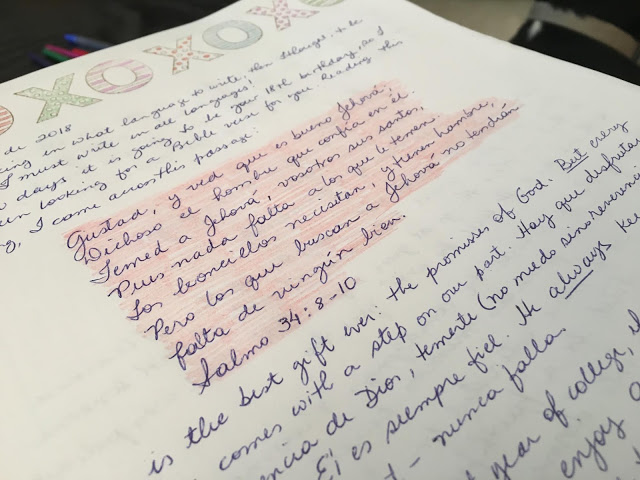 OXOXOXO
de 2018
in what language to write
I must write in all languages!
days it is going to be your 18th birthday, as I
looking for a Bible verse for you. Reading this
I came across this passage:
Gustad, y ved que es bueno Jehová;
Dichoso el hombre que confía en él.
Temed a Jehová, vosotros sus santos,
Pues nada falta a los que le temen.
Los leoncillos necesitan, y tienen hambre,
Pero los que buscan a Jehová no tendrán
falta de ningún bien.
Salmo 34:8-10
is the best gift ever: the promises of God. But every
comes with a step on our part. Hay que disfrutar
de Dios, temerle (no miedo sino
Él es siempre fiel. He always
- nunca falla.
year of college,
enjoy